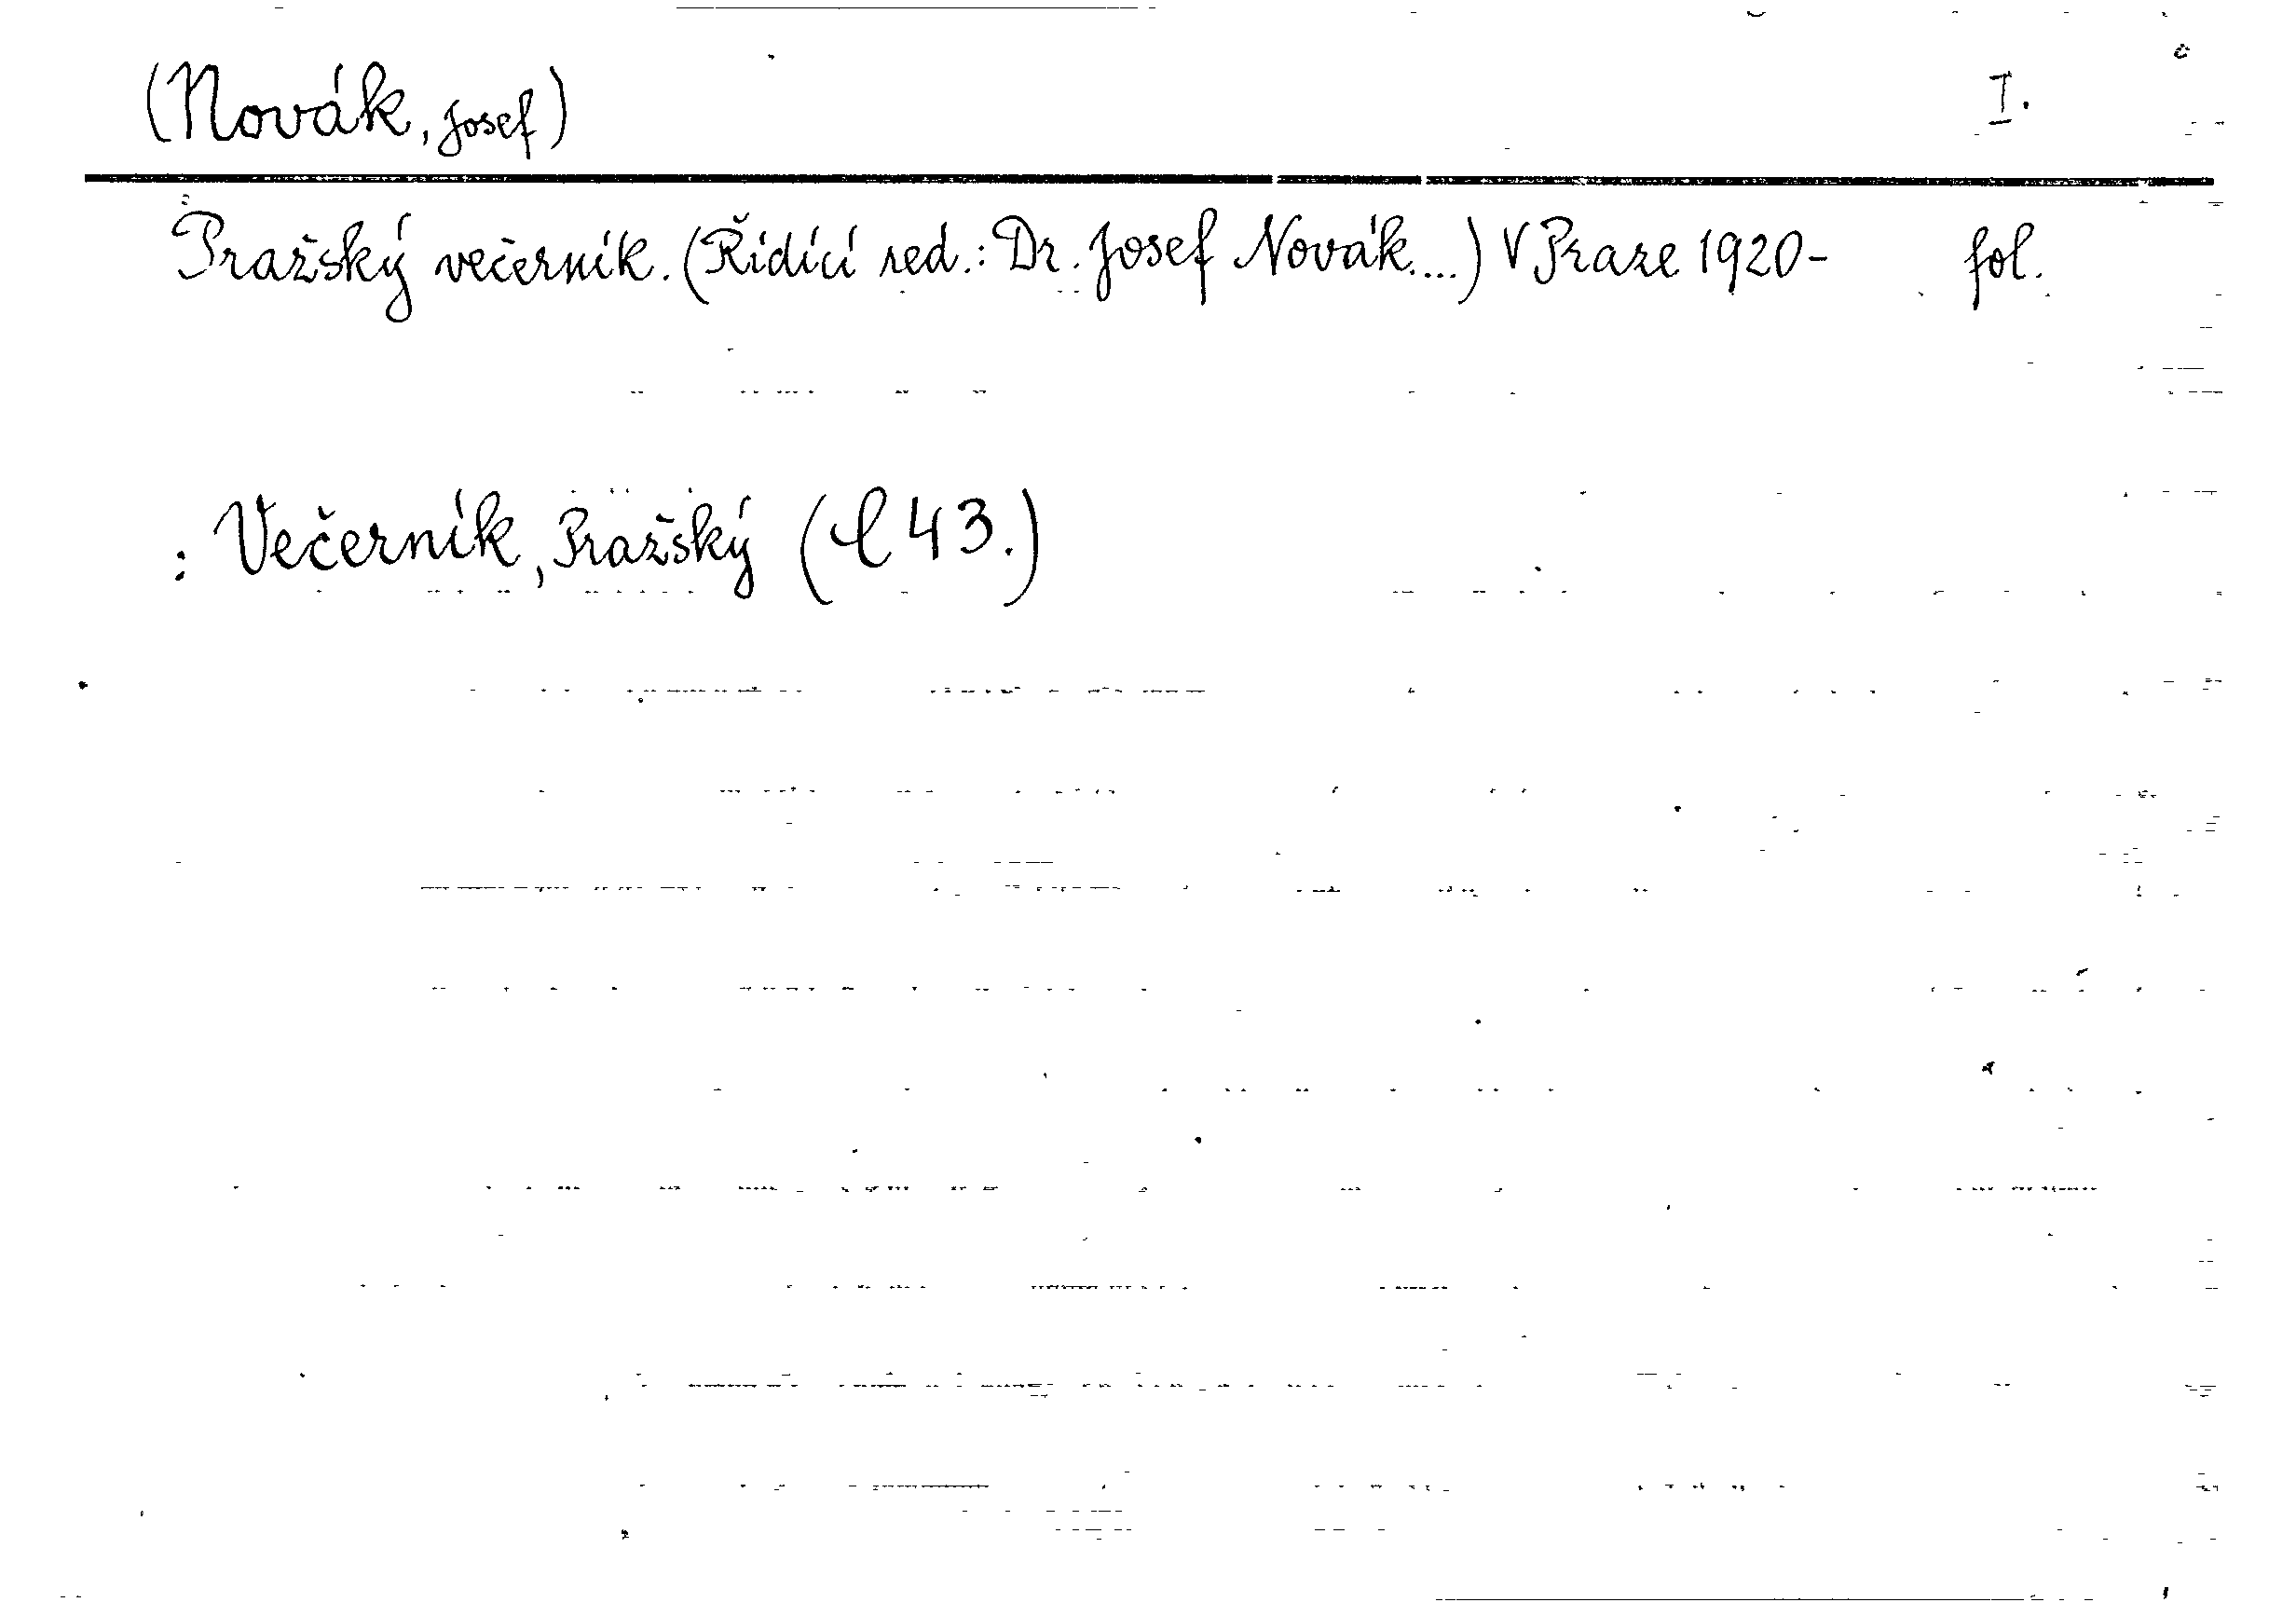 (Novák, Josef) I.
Pražský večerník. (Řídící red.: Dr. Josef Novák....) V Praze 1920- fol.
: Večerník, Pražský (l 43.)